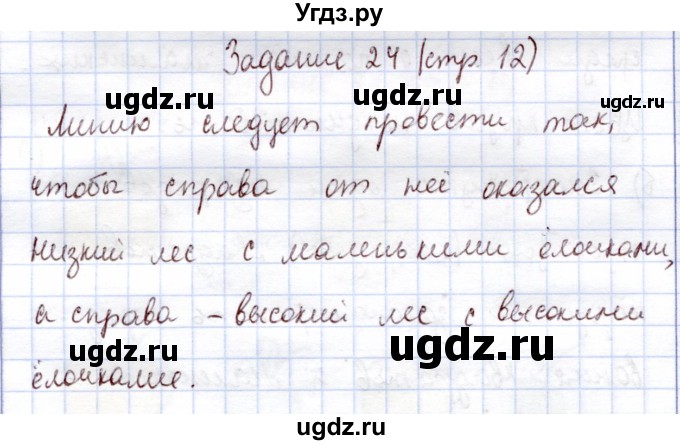 Угdz.ру
Задание 24 (стр. 12)
ugdz.ru ugdz.ru ugdz.ru
Линию следует провести так,
чтобы справа от неё оказался
ugdz.ru ugdz.ru
низкий лес с маленькими ёлочками,
а справа – высокий лес с высокими
ugdz.ru ugdz.ru
ёлочками.
ugdz.ru ugdz.ru